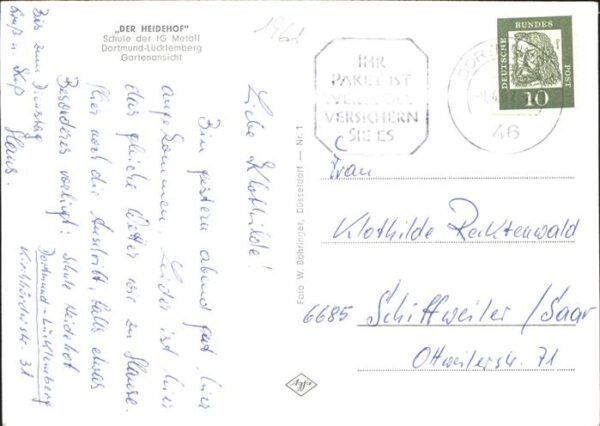 „DER HEIDEHOF"
Schule der IG Metall
Dortmund-Lücklemberg
Gartenansicht
1961
Liebe Klothilde!
Bin gestern abend gut hier
angekommen. Leider ist hier
das gleiche Wetter wie zu Hause.
Hier noch die Anschrift, falls etwas
Besonderes vorliegt: Schule Heidehof
Dortmund-Lücklemberg
Kirchhörderstr. 31
Bis zum Dienstag
Gruß u. Kuß
Klaus.
Foto W. Böhringer, Düsseldorf — Nr. 1
Agfa
IHR
PAKET IST
WERTVOLL
VERSICHERN
SIE ES
46
DEUTSCHE BUNDESPOST
10
Frau
Klothilde Recktenwald
6685 Schiffweiler/Saar
Ottweilerstr. 71